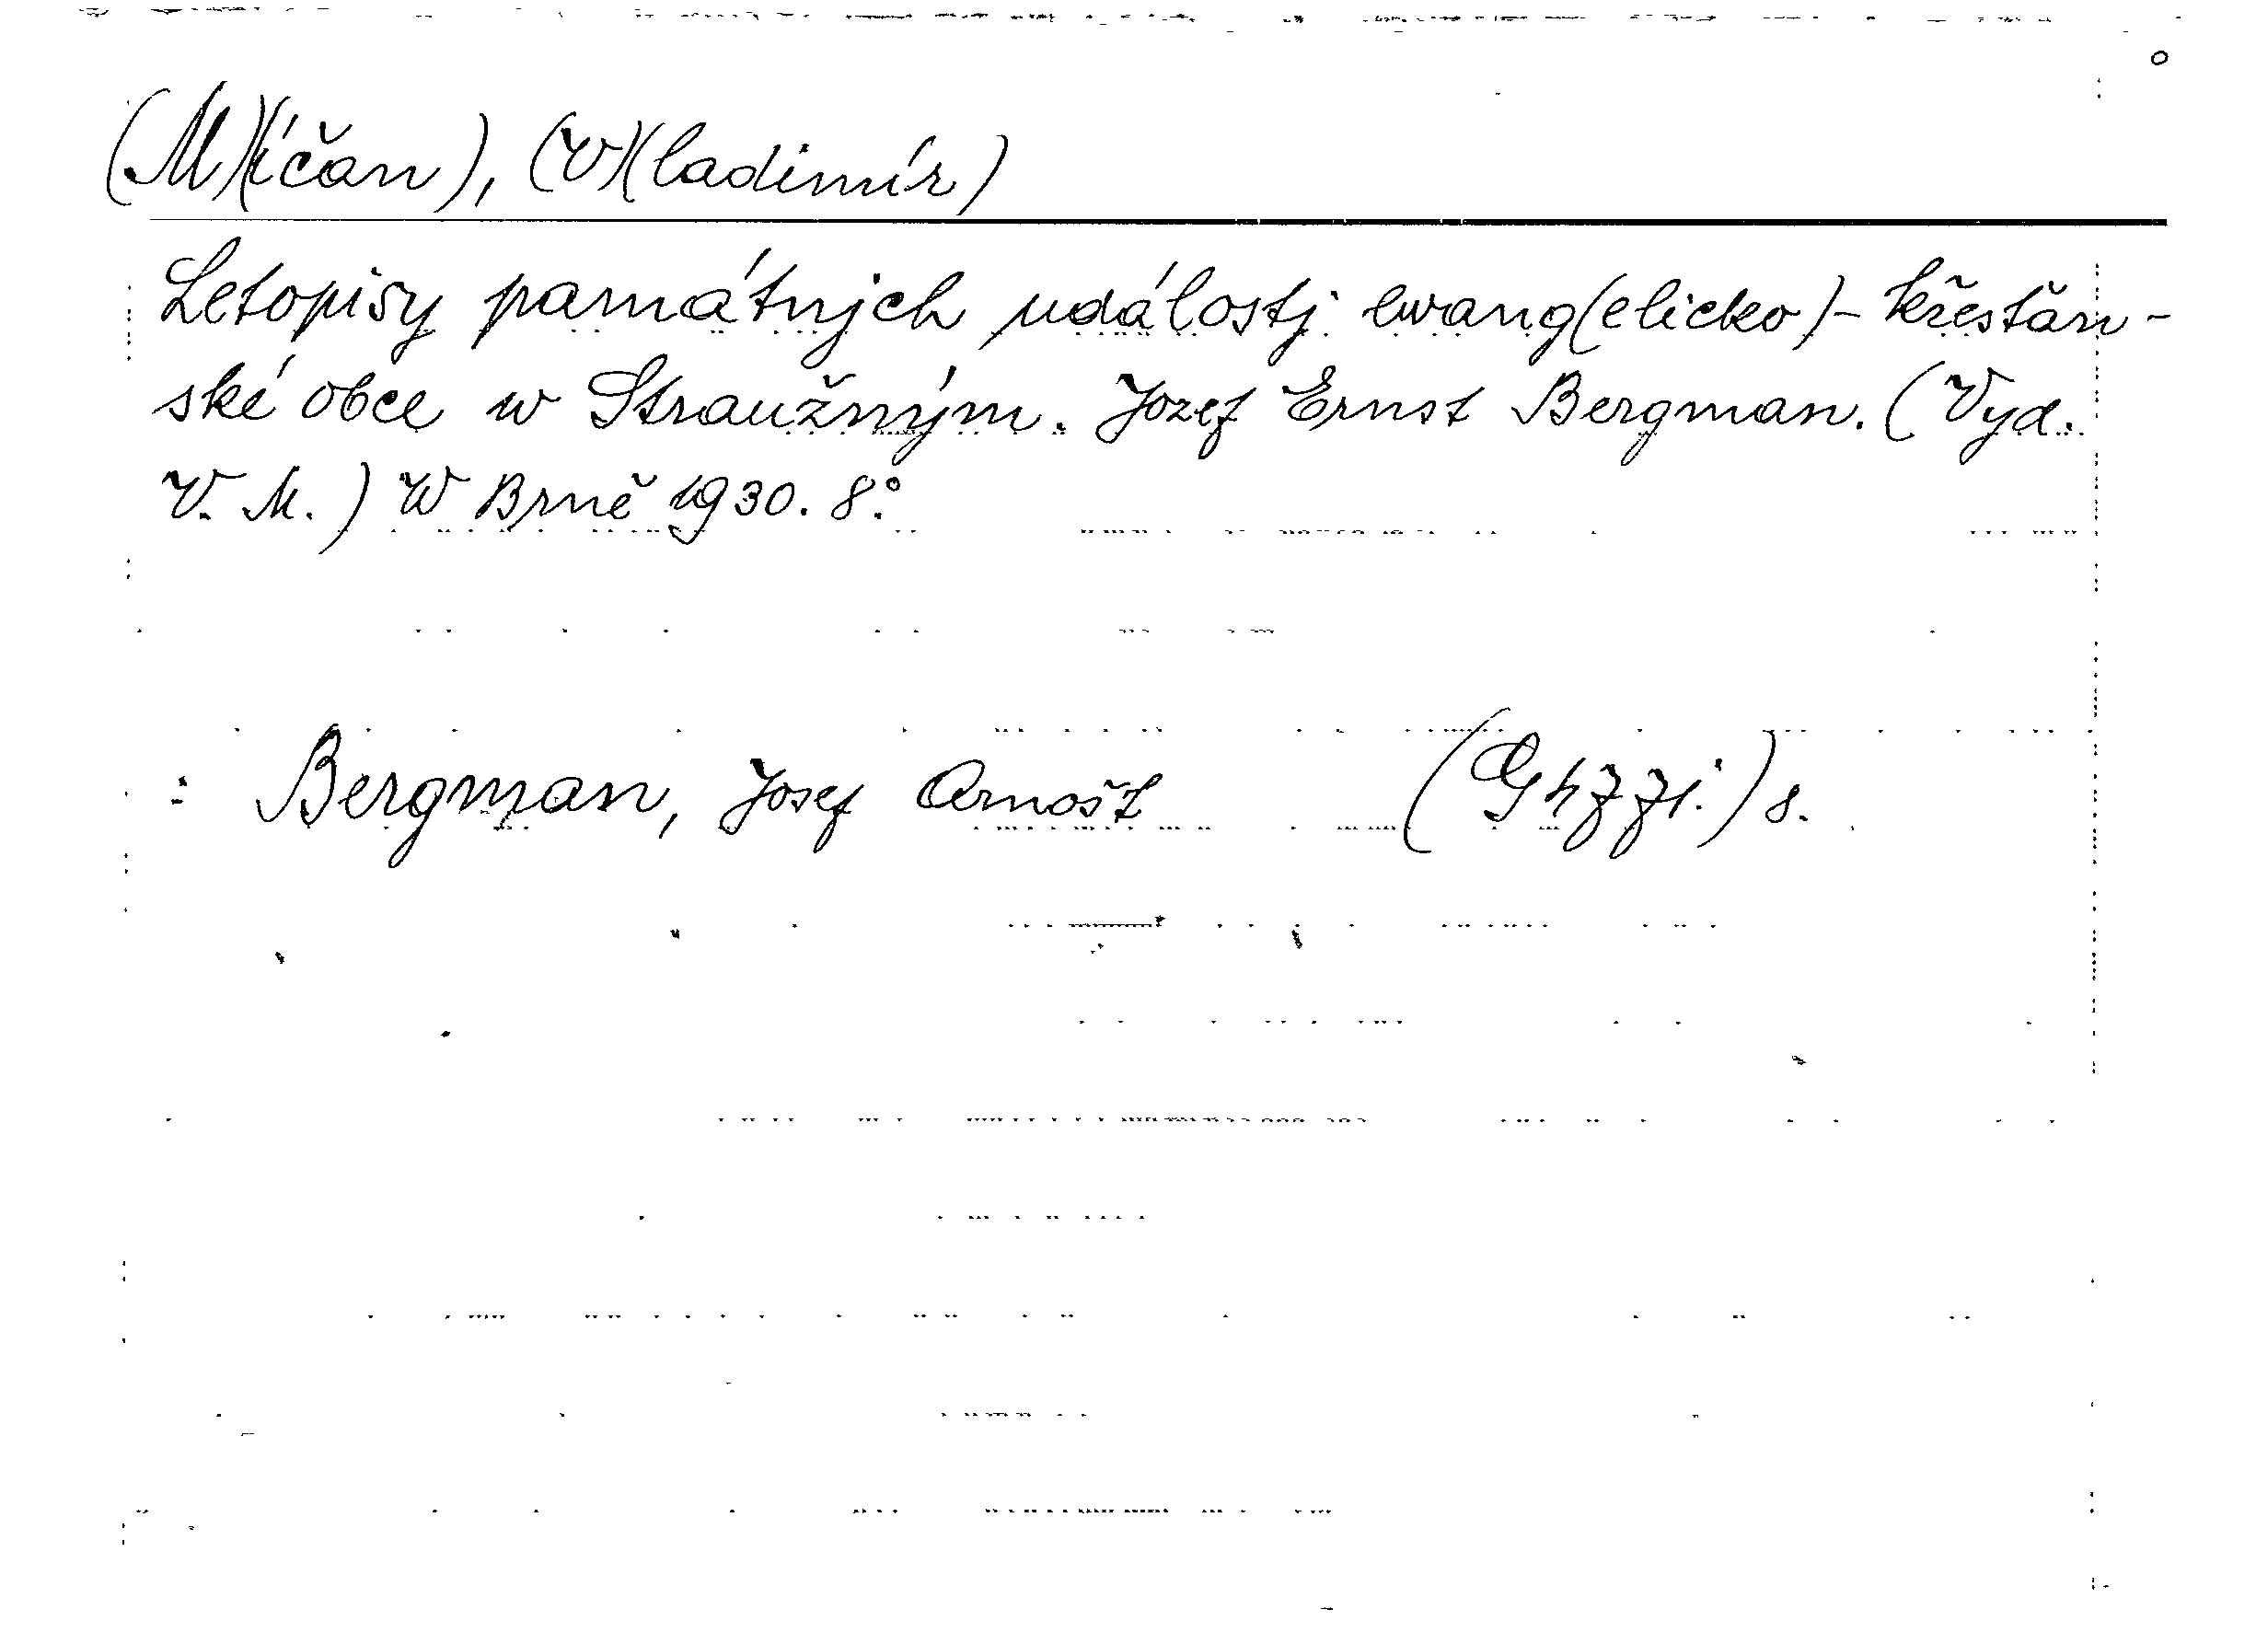 (M)(íčan), (V)(ladimír)
Letopisy památných událostj ewang(elicko)-křesťan-
ské obce w Straužným. Jozef Ernst Bergman. (Vyd.
V. M.) W Brně 1930. 8°.
: Bergman, Josef Arnošt